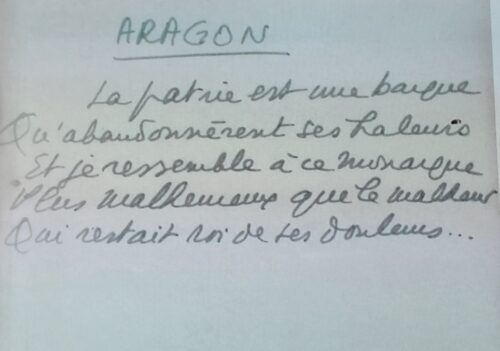 ARAGON
La patrie est une barque
Qu'abandonnèrent ses haleurs
Et je ressemble à ce monarque
Plus malheureux que le malheur
Qui restait roi de ses douleurs...